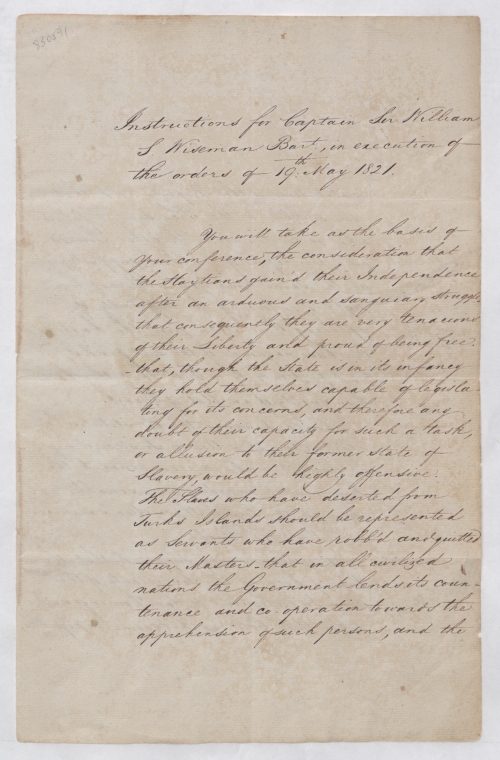 850891
Instructions for Captain Sir William
S Wiseman Bart., in execution of
the orders of 19th. May 1821.
You will take as the basis of
your conference, the consideration that
the Haytians gain'd their Independence
after an arduous and sanguiary struggle,
that consequently they are very tenacious
of their Liberty and proud of being free.
- that, though the State is in its infancy
they hold themselves capable of legisla-
ting for its concerns, and therefore any
doubt of their capacity for such a task,
or allusion to their former state of
Slavery, would be highly offensive.
The Slaves who have deserted from
Turks Islands should be represented
as Servants who have robb'd and quitted
their Masters - that in all civilized
nations the Government lends its coun-
tenance and co-operation towards the
apprehension of such persons, and the